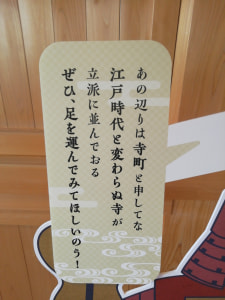 あの辺りは寺町と申してな
江戸時代と変わらぬ寺が
立派に並んでおる
ぜひ、足を運んでみてほしいのう！